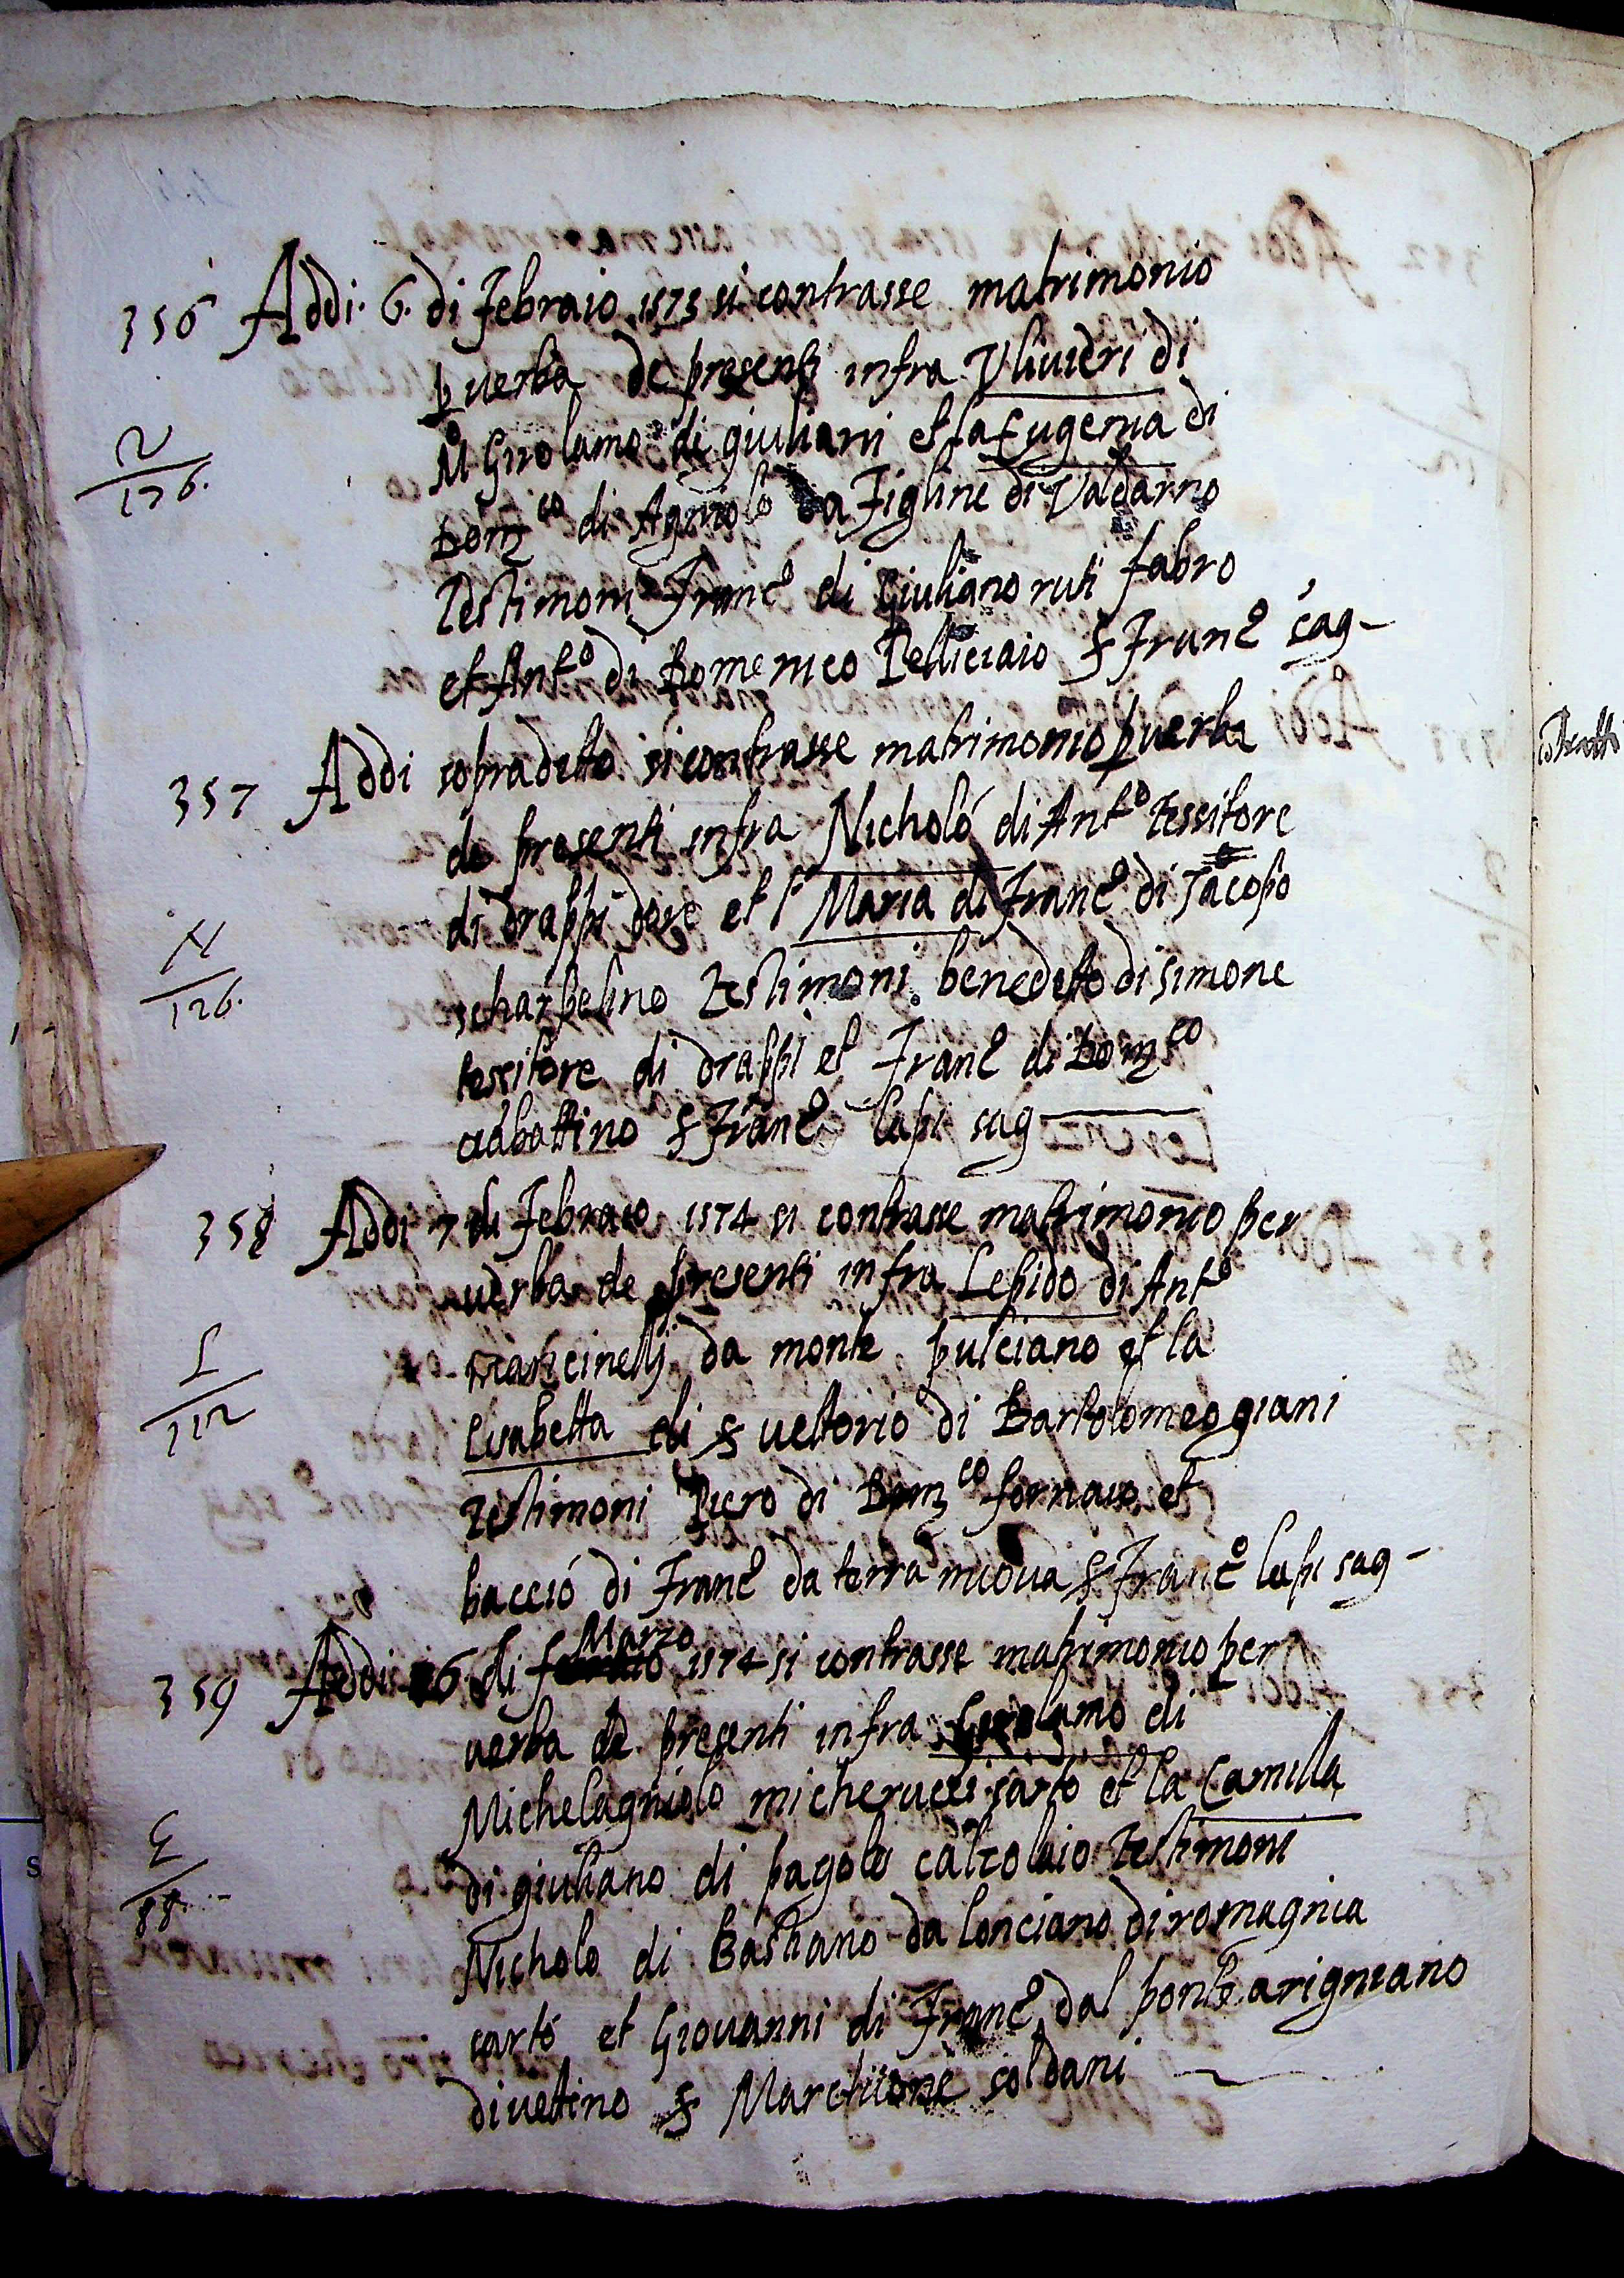 356 Addi. 6. di Febraio 1573 si contrasse matrimonio
p verba de presenti infra Vliuieri di
V
176.
Mº Girolamo di giuliani et la Eugenia di
Domco di Agniolo da Figline di Valdarno
Testimoni Francº di Giuliano ruti fabro
et Antº di Domenico Pelliciaio S Francº sag-
357 Addi sopradetto si contrasse matrimonio p verba
de presenti infra Nicholó di Antº tessitore
di drappi doro et la Maria di Francº di Jacopo
N
126.
scharpelino testimoni benedetto di simone
tessitore di drappi et Franc di Domco
ciabattino S Francº lapi sag
358 Addi 7 di Febraio 1574 si contrasse matrimonio per
verba de presenti infra Lepido di Antº
L
112
mancinelli da monte pulciano et la
Lisabetta di S vettorio di Bartolomeo giani
testimoni Piero di Domco fornaio et
baccio di Franc da terra nuova S Francº lapi sag-
Marzo
359 Addi 6 di 1574 si contrasse matrimonio per
verba de presenti infra Girolamo di
Michelagniolo micherucci sarto et la Camilla
di giuliano di pagolo calzolaio testimoni
88.
Nicholo di Bastiano da lonciano di romagnia
sarto et Giovanni di Francº dal ponte arigniano
di vettino S Marchione soldani